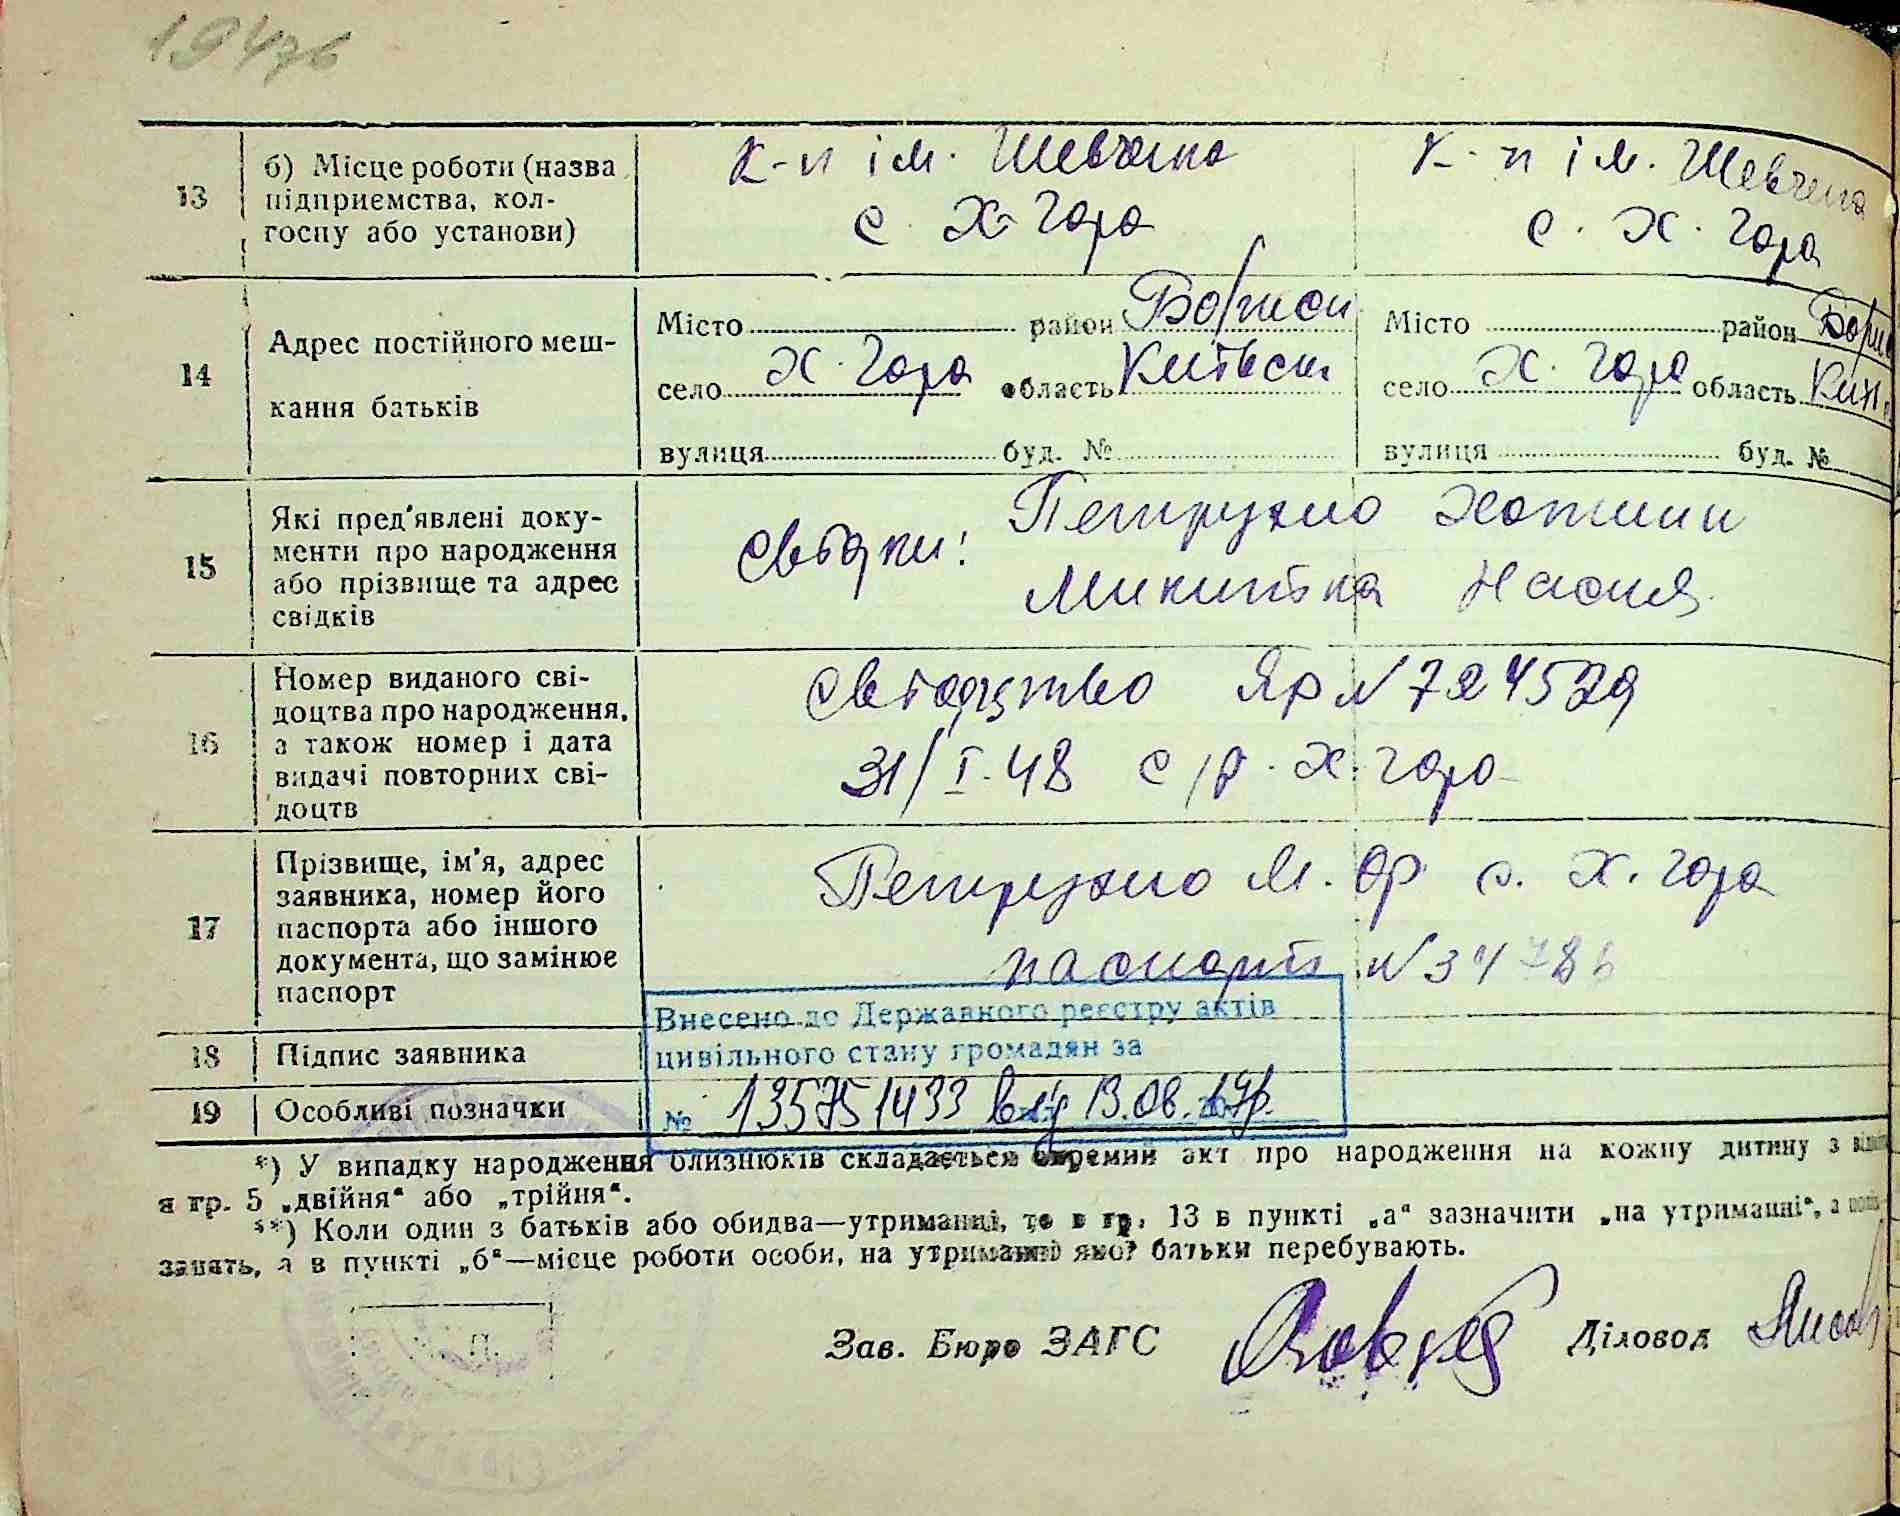 1947 б
13
б) Місце роботи (назва
підприємства, кол-
госпу або установи)
К-п ім. Шевченка
с. Х-Гора
К-п ім. Шевченка
с. Х. Гора
14
Адрес постійного меш-
кання батьків
Місто район
село Х. Гора область Київськ
вулиця буд. №
Місто район
село Х. Гора область
вулиця буд. №
15
Які пред'явлені доку-
менти про народження
або прізвище та адрес
свідків
свідки:
Микитка
16
Номер виданого сві-
доцтва про народження,
а також номер і дата
видачі повторних сві-
доцтв
Свідоцтво Яр N 724529
31/I-48 с/р. Х. Гора
17
Прізвище, ім'я, адрес
заявника, номер його
паспорта або іншого
документа, що замінює
паспорт
М. с. Х. Гора
паспорт N
18
Підпис заявника
Внесено до Державного реєстру актів
цивільного стану громадян за
№ 135751433 від 13.08.
19
Особливі позначки
*) У випадку народження близнюків складається окремий акт про народження на кожну дитину з
я гр. 5 „двійня“ або „трійня“.
**) Коли один з батьків або обидва—утриманці, то в гр. 13 в пункті „а“ зазначити „на утриманні“, а
занять, а в пункті „б“—місце роботи особи, на утриманні якої батьки перебувають.
Зав. Бюро ЗАГС
Діловод